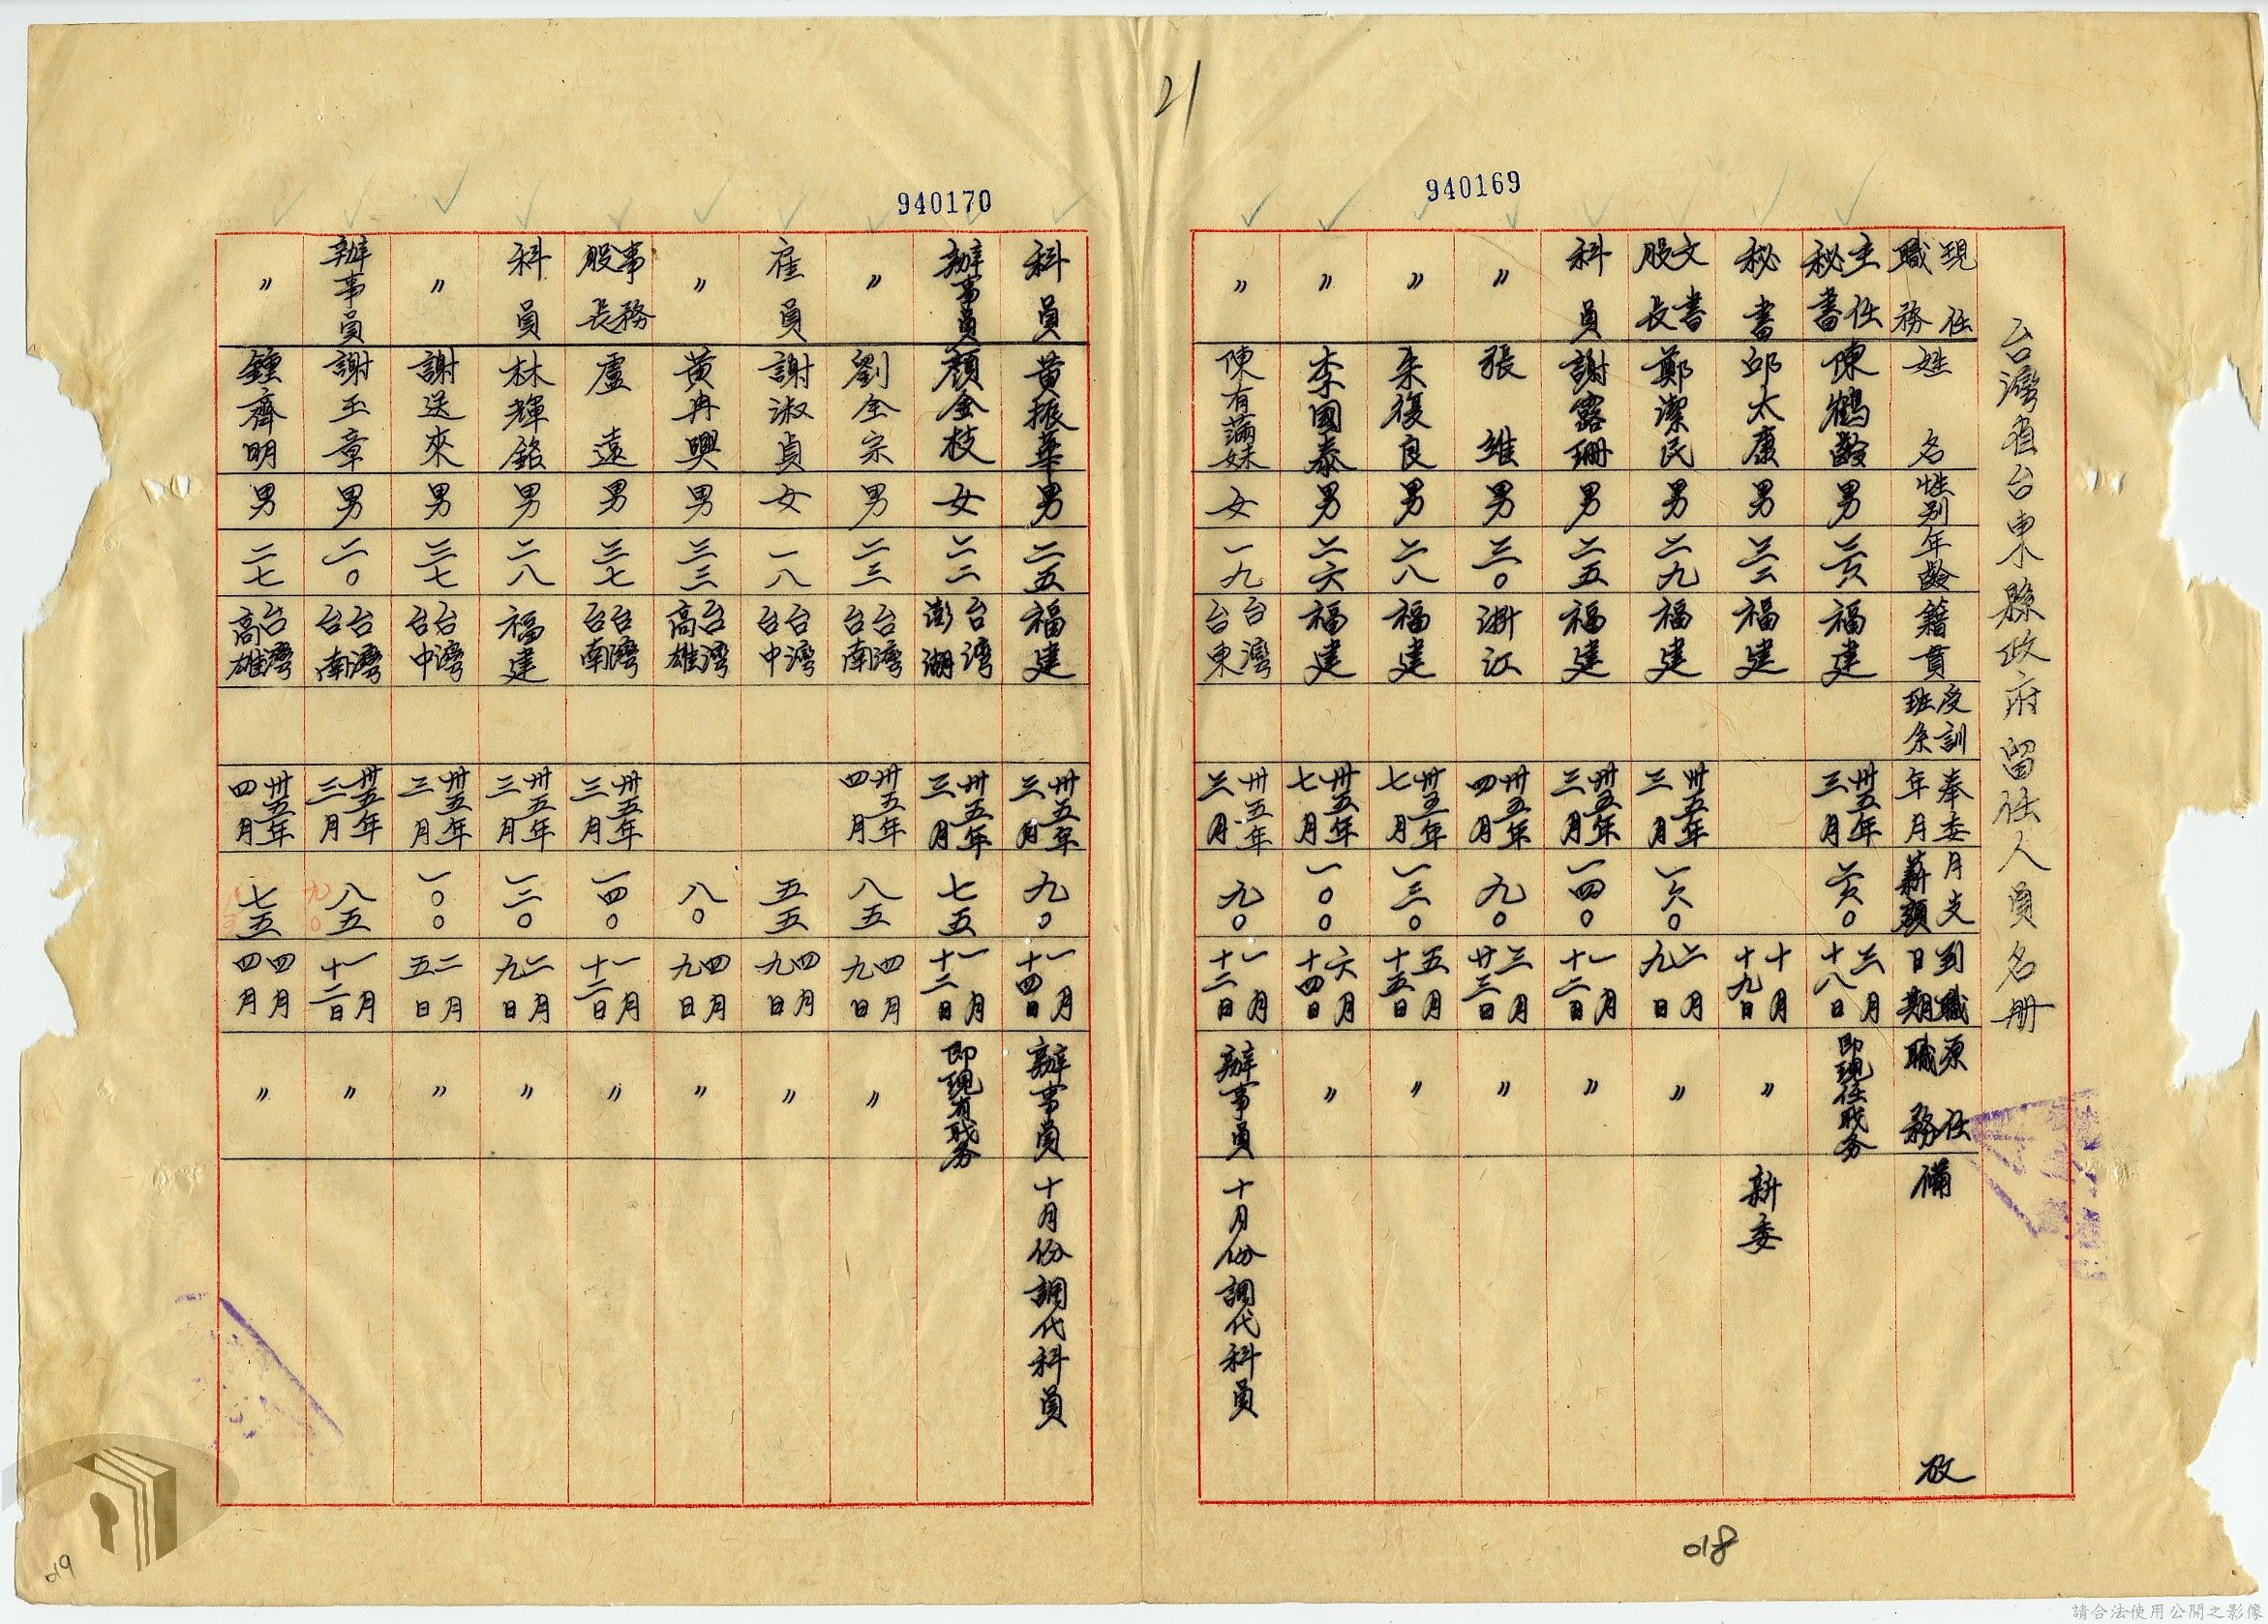 21
940169
台灣省台東縣政府留任人員名册
現任職務 姓名 性別 年齡 籍貫 受訓班系 奉委年月 月支薪額 到職日期 原任職務 備攷
主任秘書 陳鶴齡 男 福建 卅五年三月 三月十八日 即現任职务
秘書 邱太康 男 三二 福建 十月十九日 〃 新委
文書股長 鄭潔民 男 二九 福建 卅五年三月 一六〇 二月九日 〃
科員 謝露珊 男 二五 福建 卅五年三月 一四〇 一月十二日 〃
〃 張維 男 三〇 浙江 卅五年四月 九〇 三月廿三日 〃
〃 朱復良 男 二八 福建 卅五年七月 一三〇 五月十五日 〃
〃 李國泰 男 二六 福建 卅五年七月 一〇〇 六月十四日 〃
〃 陳有滿妹 女 一九 台灣台東 卅五年三月 九〇 一月十二日 辦事員 十月份調代科員
018
940170
科員 黃振華 男 二五 福建 卅五年三月 九〇 一月十四日 辦事員 十月份調代科員
辦事員 顏金枝 女 二二 台灣澎湖 卅五年三月 七五 一月十二日 即現有职务
〃 劉全宗 男 二三 台灣台南 卅五年四月 八五 四月九日 〃
雇員 謝淑貞 女 一八 台灣台中 五五 四月九日 〃
〃 黃冉興 男 三三 台灣高雄 八〇 四月九日 〃
事務股長 盧遠 男 三七 台灣台南 卅五年三月 一四〇 一月十二日 〃
科員 林輝銘 男 二八 福建 卅五年三月 一三〇 二月九日 〃
〃 謝送來 男 三七 台灣台中 卅五年三月 一〇〇 二月五日 〃
辦事員 謝玉章 男 二〇 台灣台南 卅五年三月 八五 九〇 一月十二日 〃
〃 鍾齊明 男 二七 台灣高雄 卅五年四月 七五 四月四月 〃
019
請合法使用公開之影像